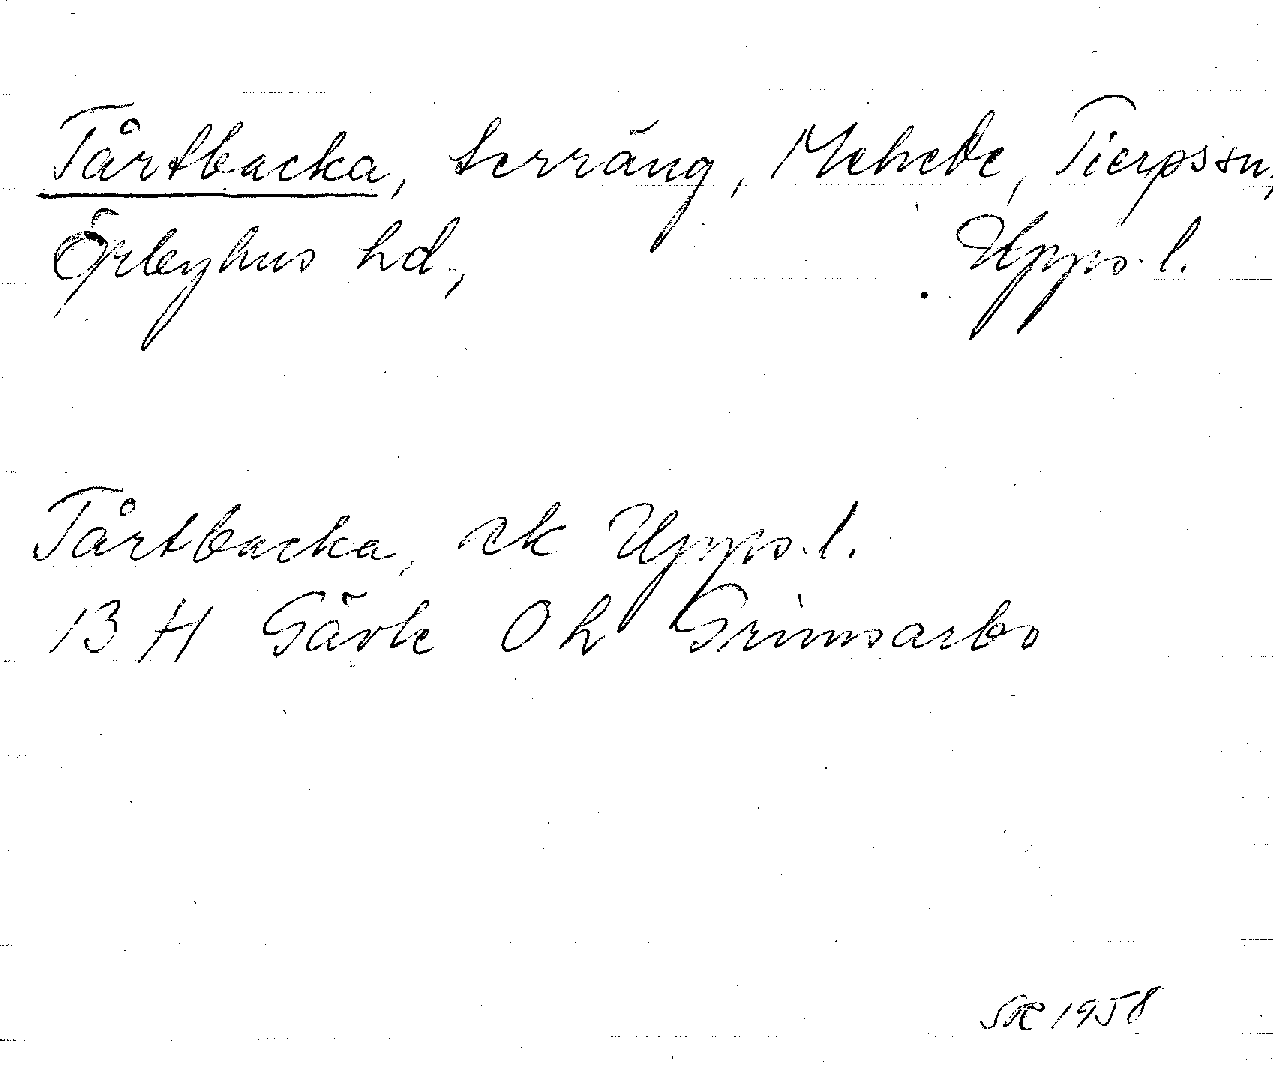 Tårtbacka, terräng, Mehede, Tierps sn,
Örbyhus hd, Upps. l.
Tårtbacka, ek Upps. l.
13 H Gävle 0 h Grimsarbo
SOR 1958